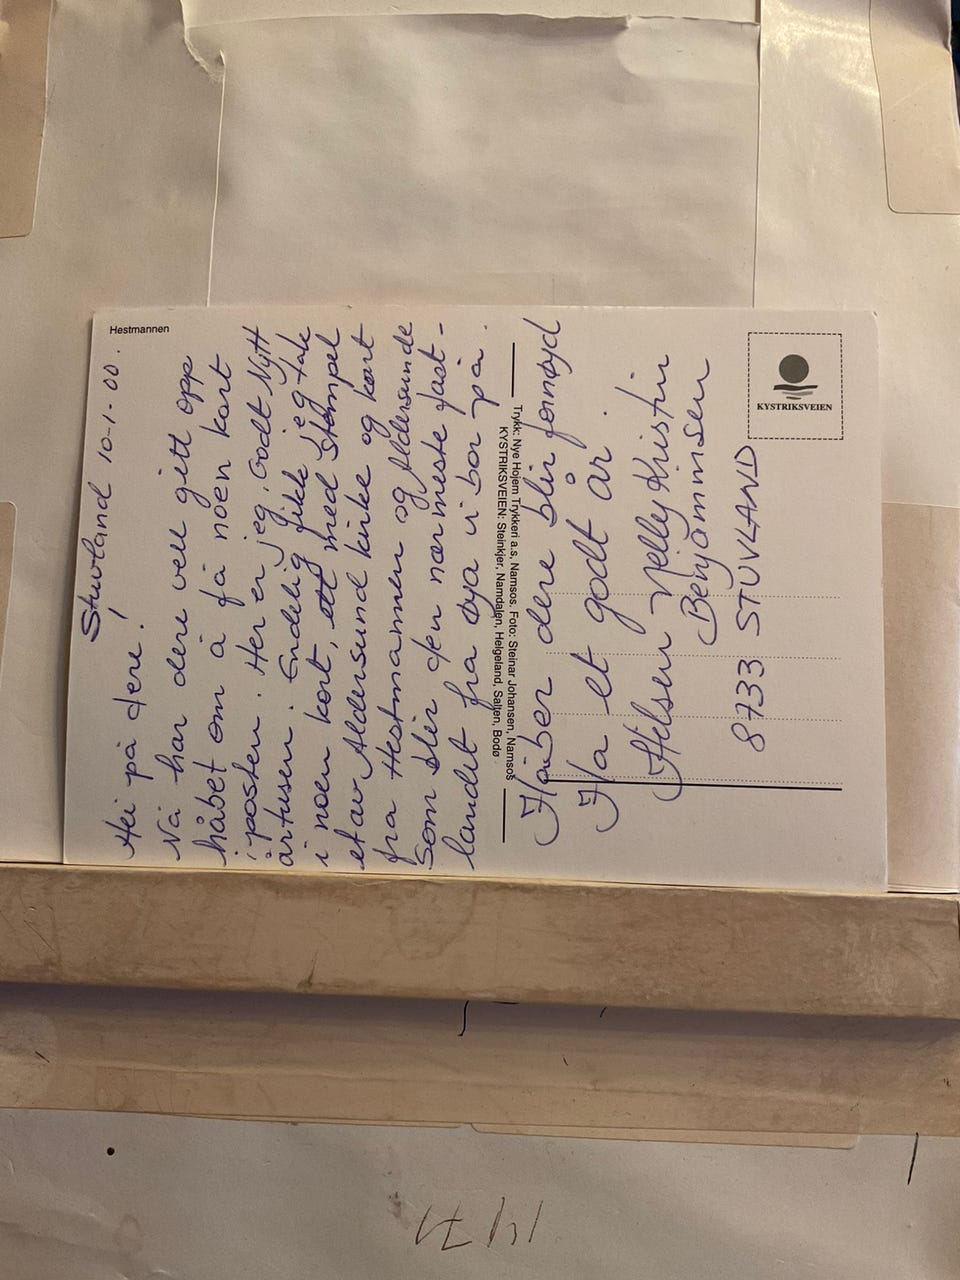 Hestmannen
Stuvland 10-1.00.
Hei på dere!
Nå har dere vell gitt opp
håbet om å få noen kort
i posten. Her er jeg. Godt Nytt
årtusen. Endelig fikk jeg tak
i noen kort, ett med stempel
et av Aldersund kirke og kort
fra Hestmannen og Aldersunde
som blir den nærmeste fast-
landet fra øya vi bor på.
Trykk: Nye Hojem Trykkeri a.s, Namsos. Foto: Steinar Johansen, Namsos
KYSTRIKSVEIEN: Steinkjer, Namdalen, Helgeland, Salten, Bodø
Håber dere blir fornøyd
Ha et godt år.
Hilsen Nelly Kristin
Benjaminsen
8733 STUVLAND
KYSTRIKSVEIEN